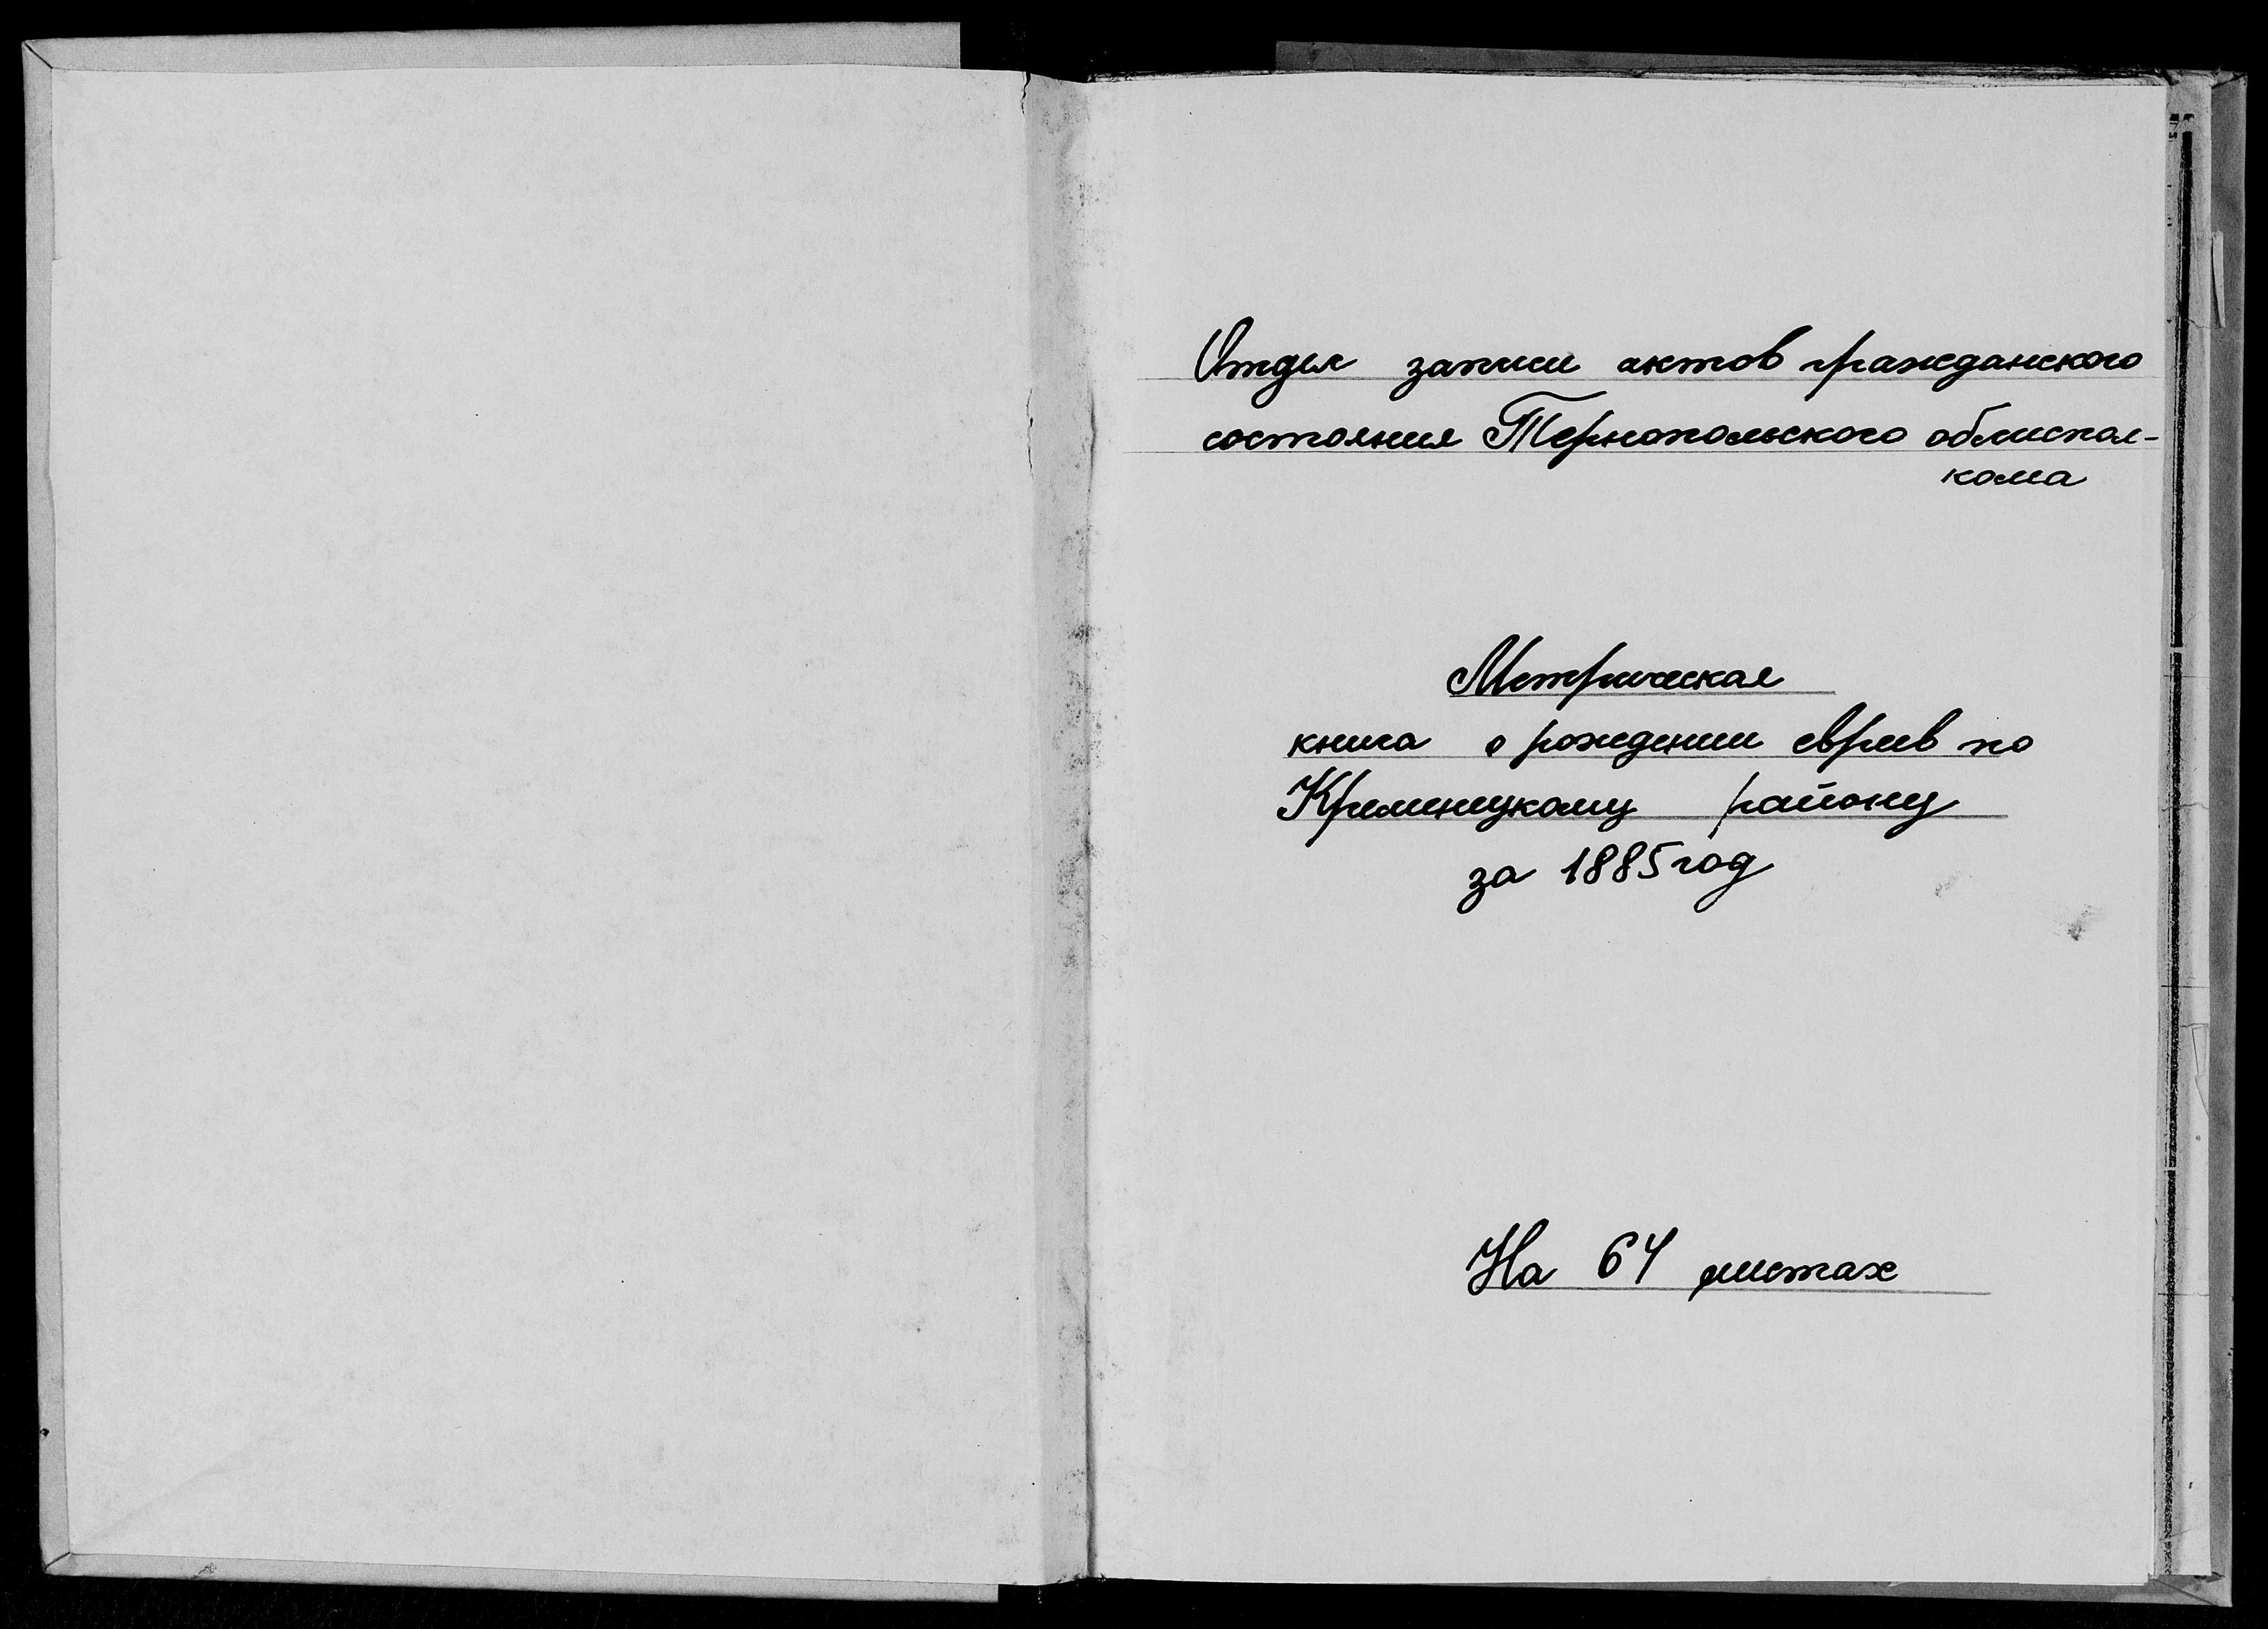 Отдел записи актов гражданского
состояния Тернопольского облиспол-
кома
Метрическая
книга о рождении евреев по
Кременецкому району
за 1885 год
На 64 листах